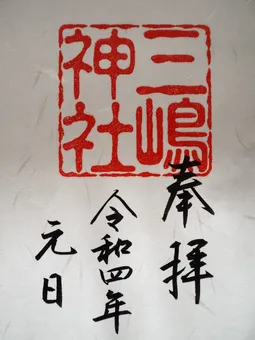 三嶋
神社
奉拝
令和四年
元日